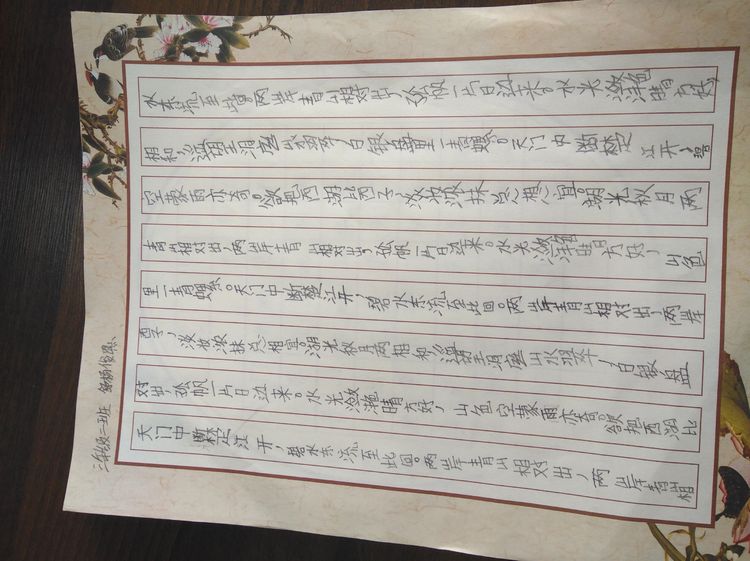 天门中断楚江开，碧水东流至此回。两岸青山相对出，两岸青山相
对出，孤帆一片日边来。水光潋滟晴方好，山色空蒙雨亦奇。欲把西湖比
西子，淡妆浓抹总相宜。湖光秋月两相和，遥望洞庭山水翠，白银盘
里一青螺。天门中断楚江开，碧水东流至此回。两岸青山相对出，两岸
青山相对出，两岸青山相对出，孤帆一片日边来。水光潋滟晴方好，山色
空蒙雨亦奇。欲把西湖比西子，淡妆浓抹总相宜。湖光秋月两
相和，遥望洞庭山水翠，白银盘里一青螺。天门中断楚江开，碧
水东流至此回。两岸青山相对出，孤帆一片日边来。水光潋滟晴方好
三年级二班